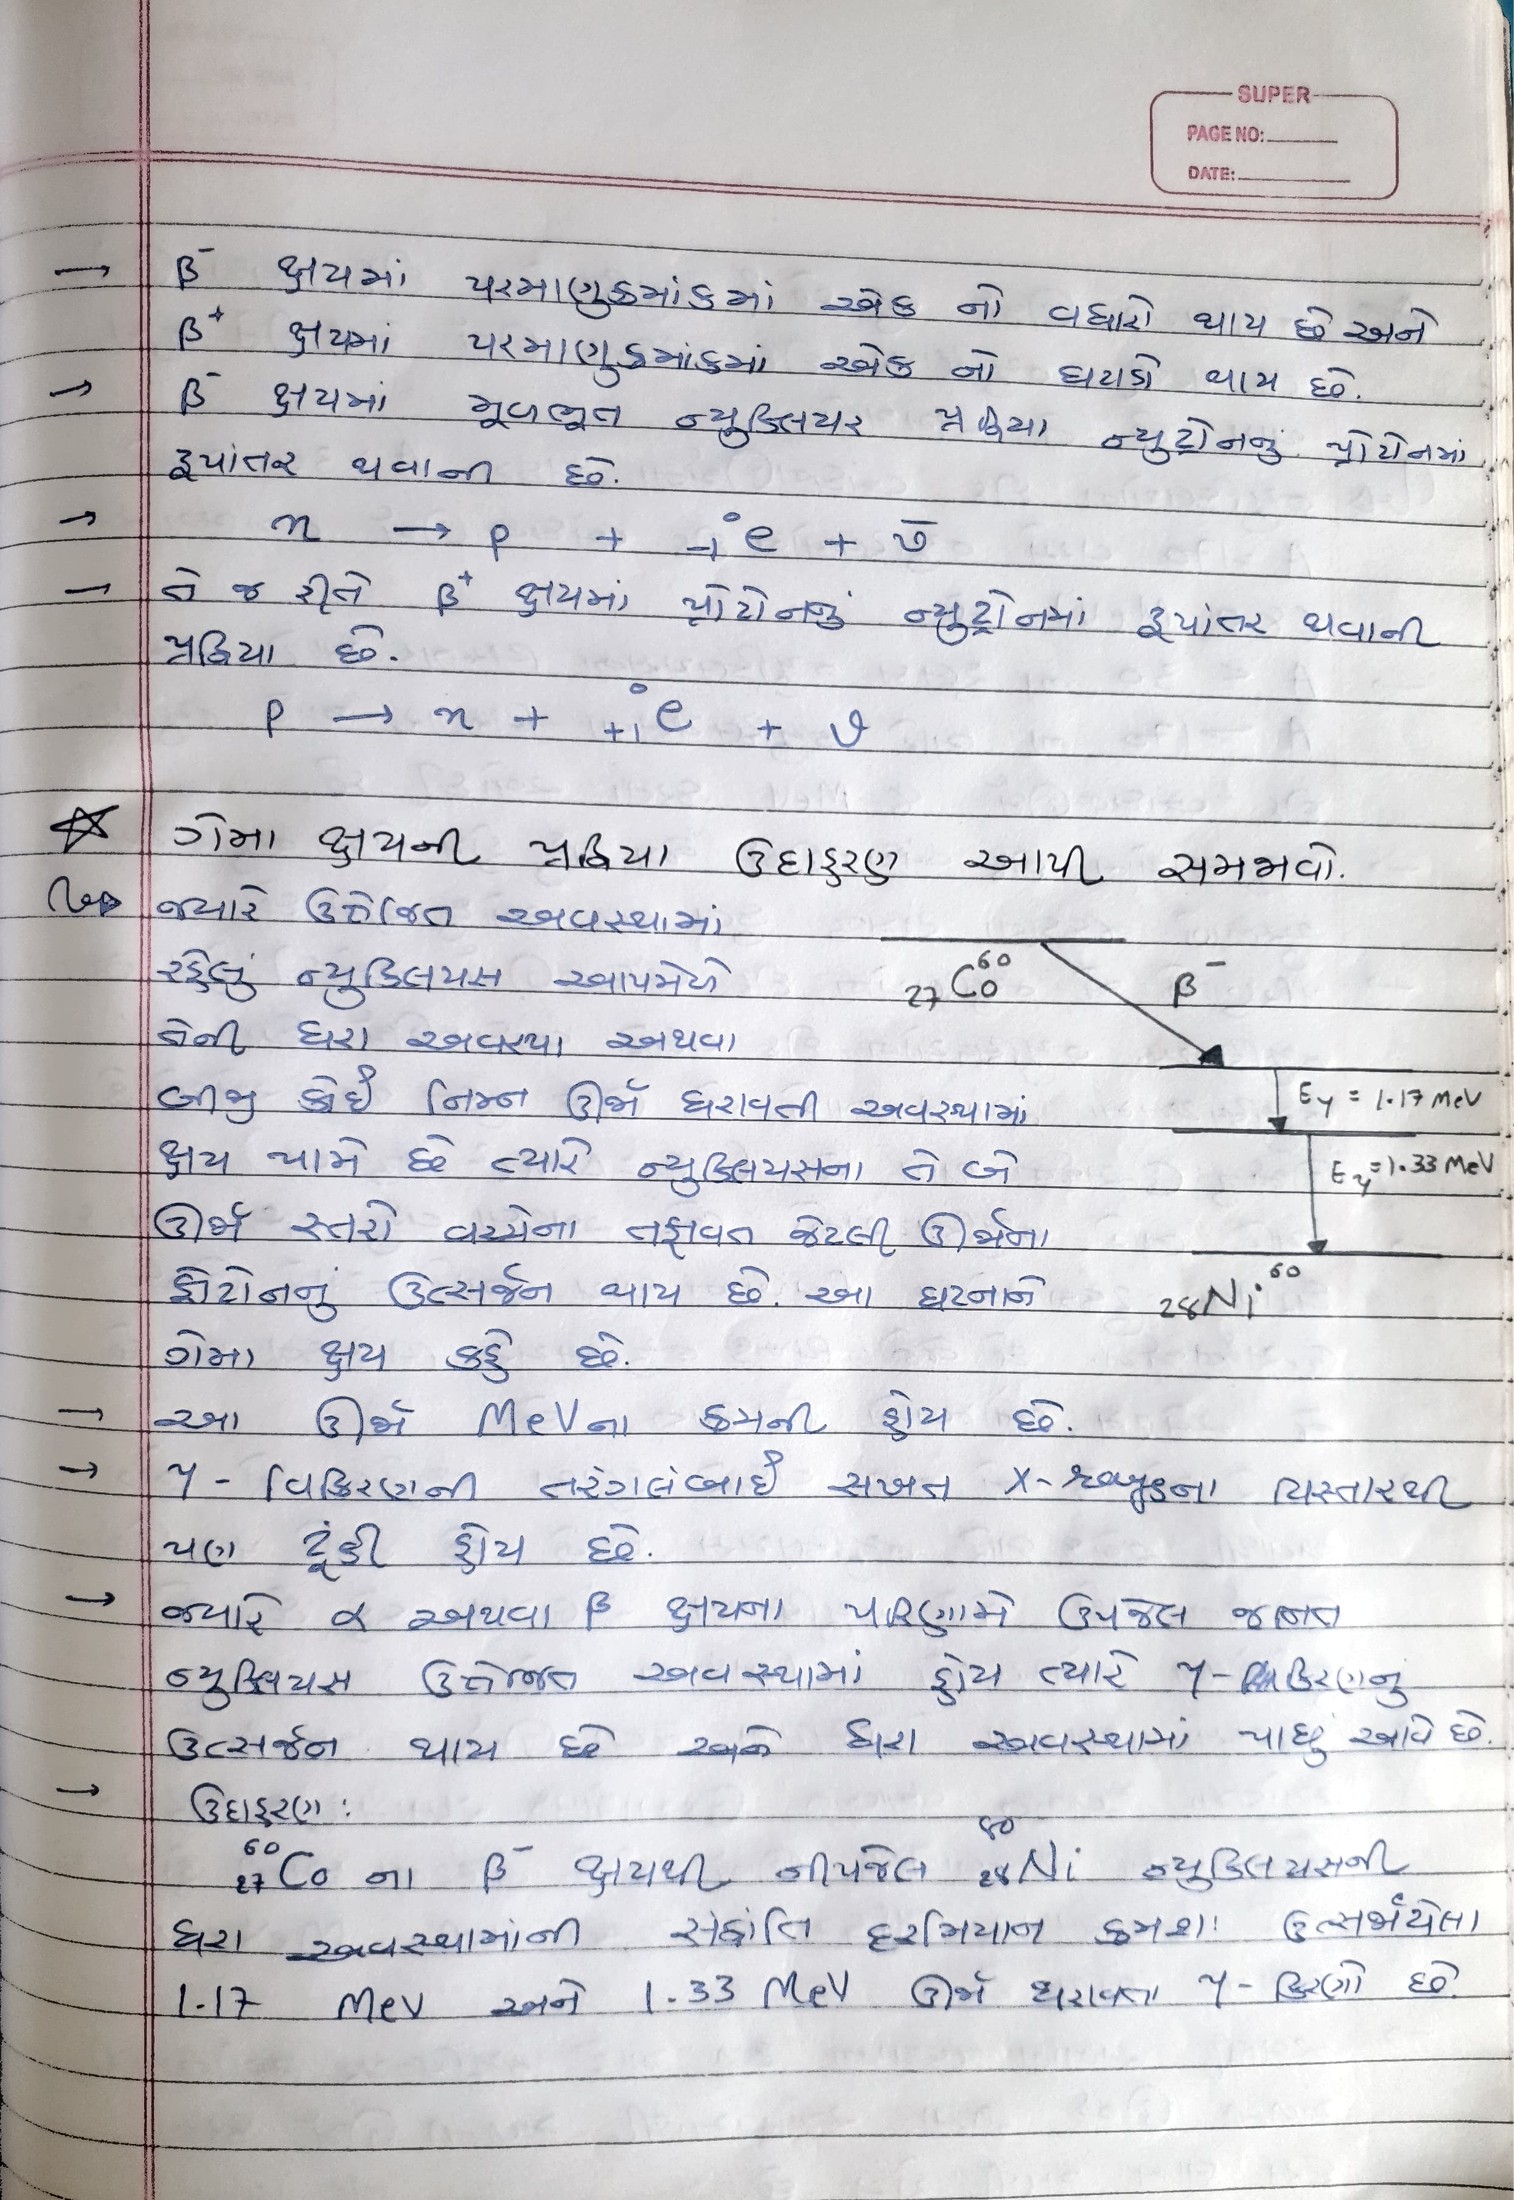 SUPER
PAGE NO:
DATE:
→ β⁻ ક્ષયમાં પરમાણુક્રમાંકમાં એક નો વધારો થાય છે અને
β⁺ ક્ષયમાં પરમાણુક્રમાંકમાં એક નો ઘટાડો થાય છે.
→ β⁻ ક્ષયમાં મૂળભૂત ન્યુક્લિયર પ્રક્રિયા ન્યુટ્રોનનું પ્રોટોનમાં
રૂપાંતર થવાની છે.
→ n → p + ₋₁⁰e + ν̄
→ તે જ રીતે β⁺ ક્ષયમાં પ્રોટોનનું ન્યુટ્રોનમાં રૂપાંતર થવાની
પ્રક્રિયા છે.
p → n + ₊₁⁰e + ν
☆ ગેમા ક્ષયની પ્રક્રિયા ઉદાહરણ આપી સમજાવો.
જ્યારે ઉત્તેજિત અવસ્થામાં
રહેલું ન્યુક્લિયસ આપમેળે
તેની ધરા અવસ્થા અથવા
બીજી કોઈ નિમ્ન ઊર્જા ધરાવતી અવસ્થામાં
ક્ષય પામે છે ત્યારે ન્યુક્લિયસના તે બે
ઊર્જા સ્તરો વચ્ચેના તફાવત જેટલી ઊર્જાના
ફોટોનનું ઉત્સર્જન થાય છે. આ ઘટનાને
ગેમા ક્ષય કહે છે.
₂₇Co⁶⁰ β⁻
Eγ = 1.17 MeV
Eγ = 1.33 MeV
₂₈Ni⁶⁰
→ આ ઊર્જા MeV ના ક્રમની હોય છે.
→ γ - વિકિરણની તરંગલંબાઈ સખત X- ના વિસ્તારથી
પણ ટૂંકી હોય છે.
→ જ્યારે α અથવા β ક્ષયના પરિણામે ઉપજેલ જનિત
ન્યુક્લિયસ ઉત્તેજિત અવસ્થામાં હોય ત્યારે γ - વિકિરણનું
ઉત્સર્જન થાય છે અને ધરા અવસ્થામાં પાછું આવે છે.
→ ઉદાહરણ :
⁶⁰₂₇Co ના β⁻ ક્ષયથી નીપજેલ ⁶⁰₂₈Ni ન્યુક્લિયસની
ધરા અવસ્થામાંની સંક્રાંતિ દરમિયાન ક્રમશઃ ઉત્સર્જાયેલા
1.17 MeV અને 1.33 MeV ઊર્જા ધરાવતા γ - કિરણો છે.